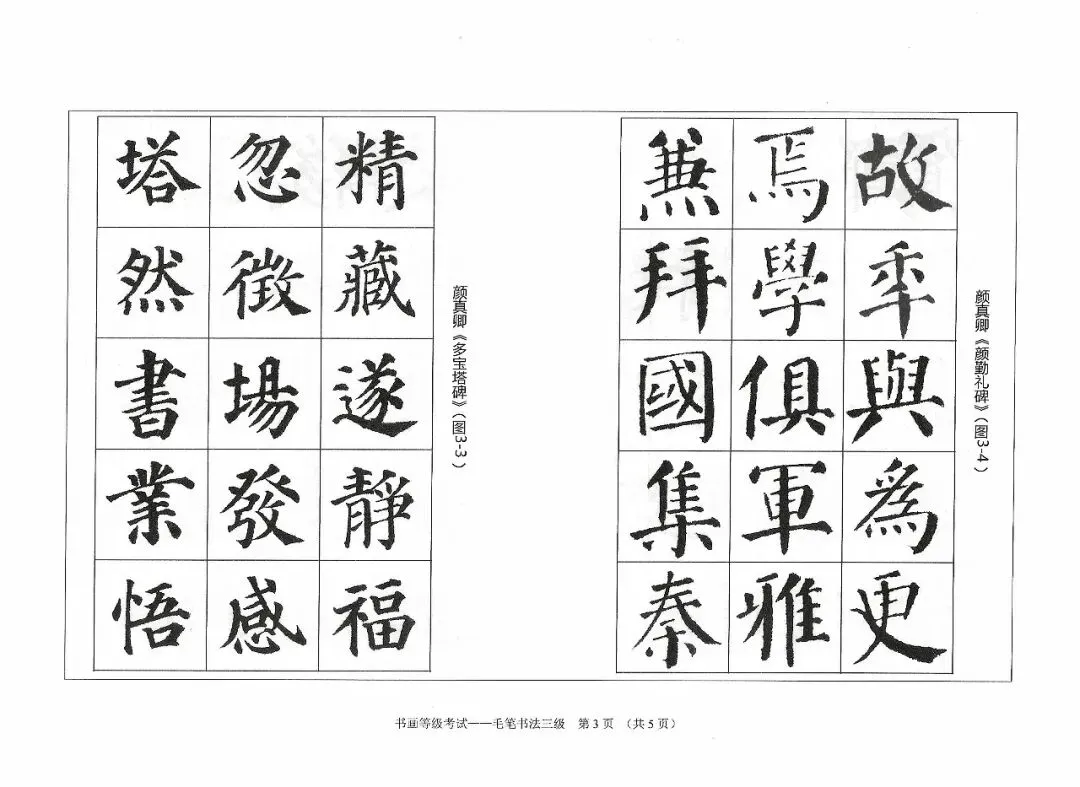 颜真卿《颜勤礼碑》(图3-4)
故年與爲更
焉學俱軍雅
兼拜國集秦
颜真卿《多宝塔碑》(图3-3)
精藏遂靜福
忽徵場發感
塔然書業悟
书画等级考试——毛笔书法三级 第3页 （共5页）